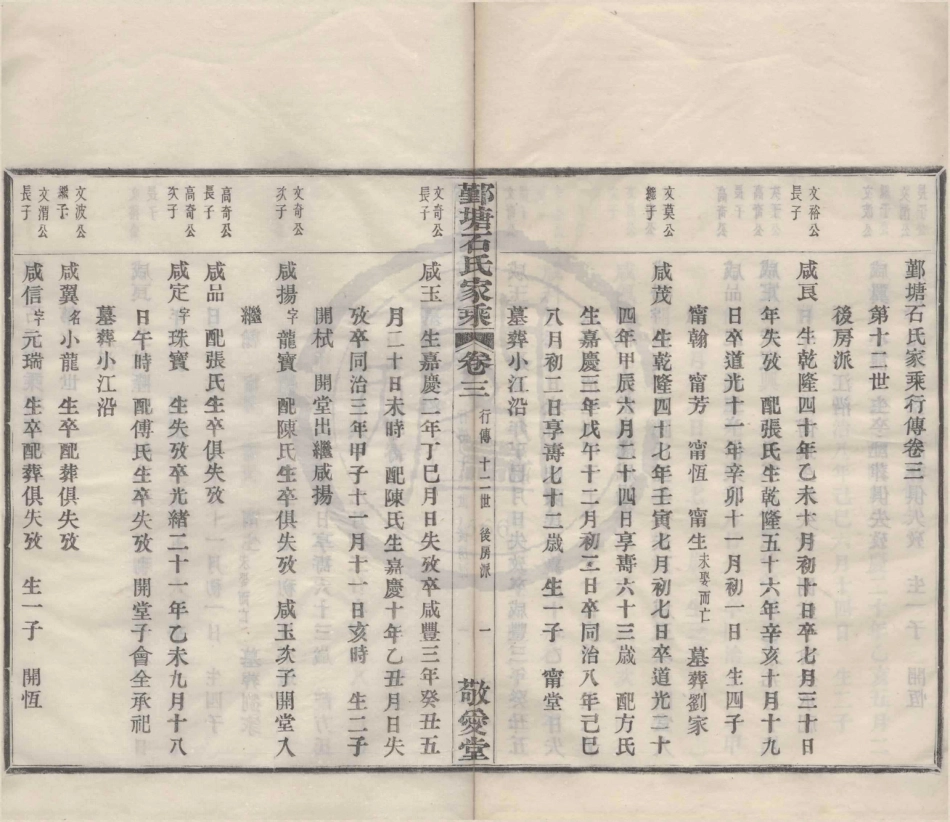 鄞塘石氏家乘行傳卷三
第十二世
後房派
文裕公
長子
咸良 生乾隆四十年乙未十月初十日卒七月三十日
年失攷 配張氏生乾隆五十六年辛亥十月十九
日卒道光十一年辛卯十一月初一日 生四子
甯翰 甯芳 甯恆 甯生未娶而亡 墓葬劉家
文莫公
繼子
咸茂 生乾隆四十七年壬寅七月初七日卒道光二十
四年甲辰六月二十四日享壽六十三歲 配方氏
生嘉慶三年戊午十二月初三日卒同治八年己巳
八月初二日享壽七十二歲 生一子 甯堂
墓葬小江沿
鄞塘石氏家乘 卷三 行傳 十二世 後房派 一 敬愛堂
文奇公
長子
咸玉 生嘉慶二年丁巳月日失攷卒咸豐三年癸丑五
月二十日未時 配陳氏生嘉慶十年乙丑月日失
攷卒同治三年甲子十一月十一日亥時 生二子
開栻 開堂出繼咸揚
文奇公
次子
咸揚字龍寶 配陳氏生卒俱失攷 咸玉次子開堂入
繼
高奇公
長子
咸品 配張氏生卒俱失攷
高奇公
次子
咸定字珠寶 生失攷卒光緒二十一年乙未九月十八
日午時 配傅氏生卒失攷 開堂子會全承祀
墓葬小江沿
文波公
繼子
咸翼名小龍 生卒配葬俱失攷
文渭公
長子
咸信字元瑞 生卒配葬俱失攷 生一子 開恆